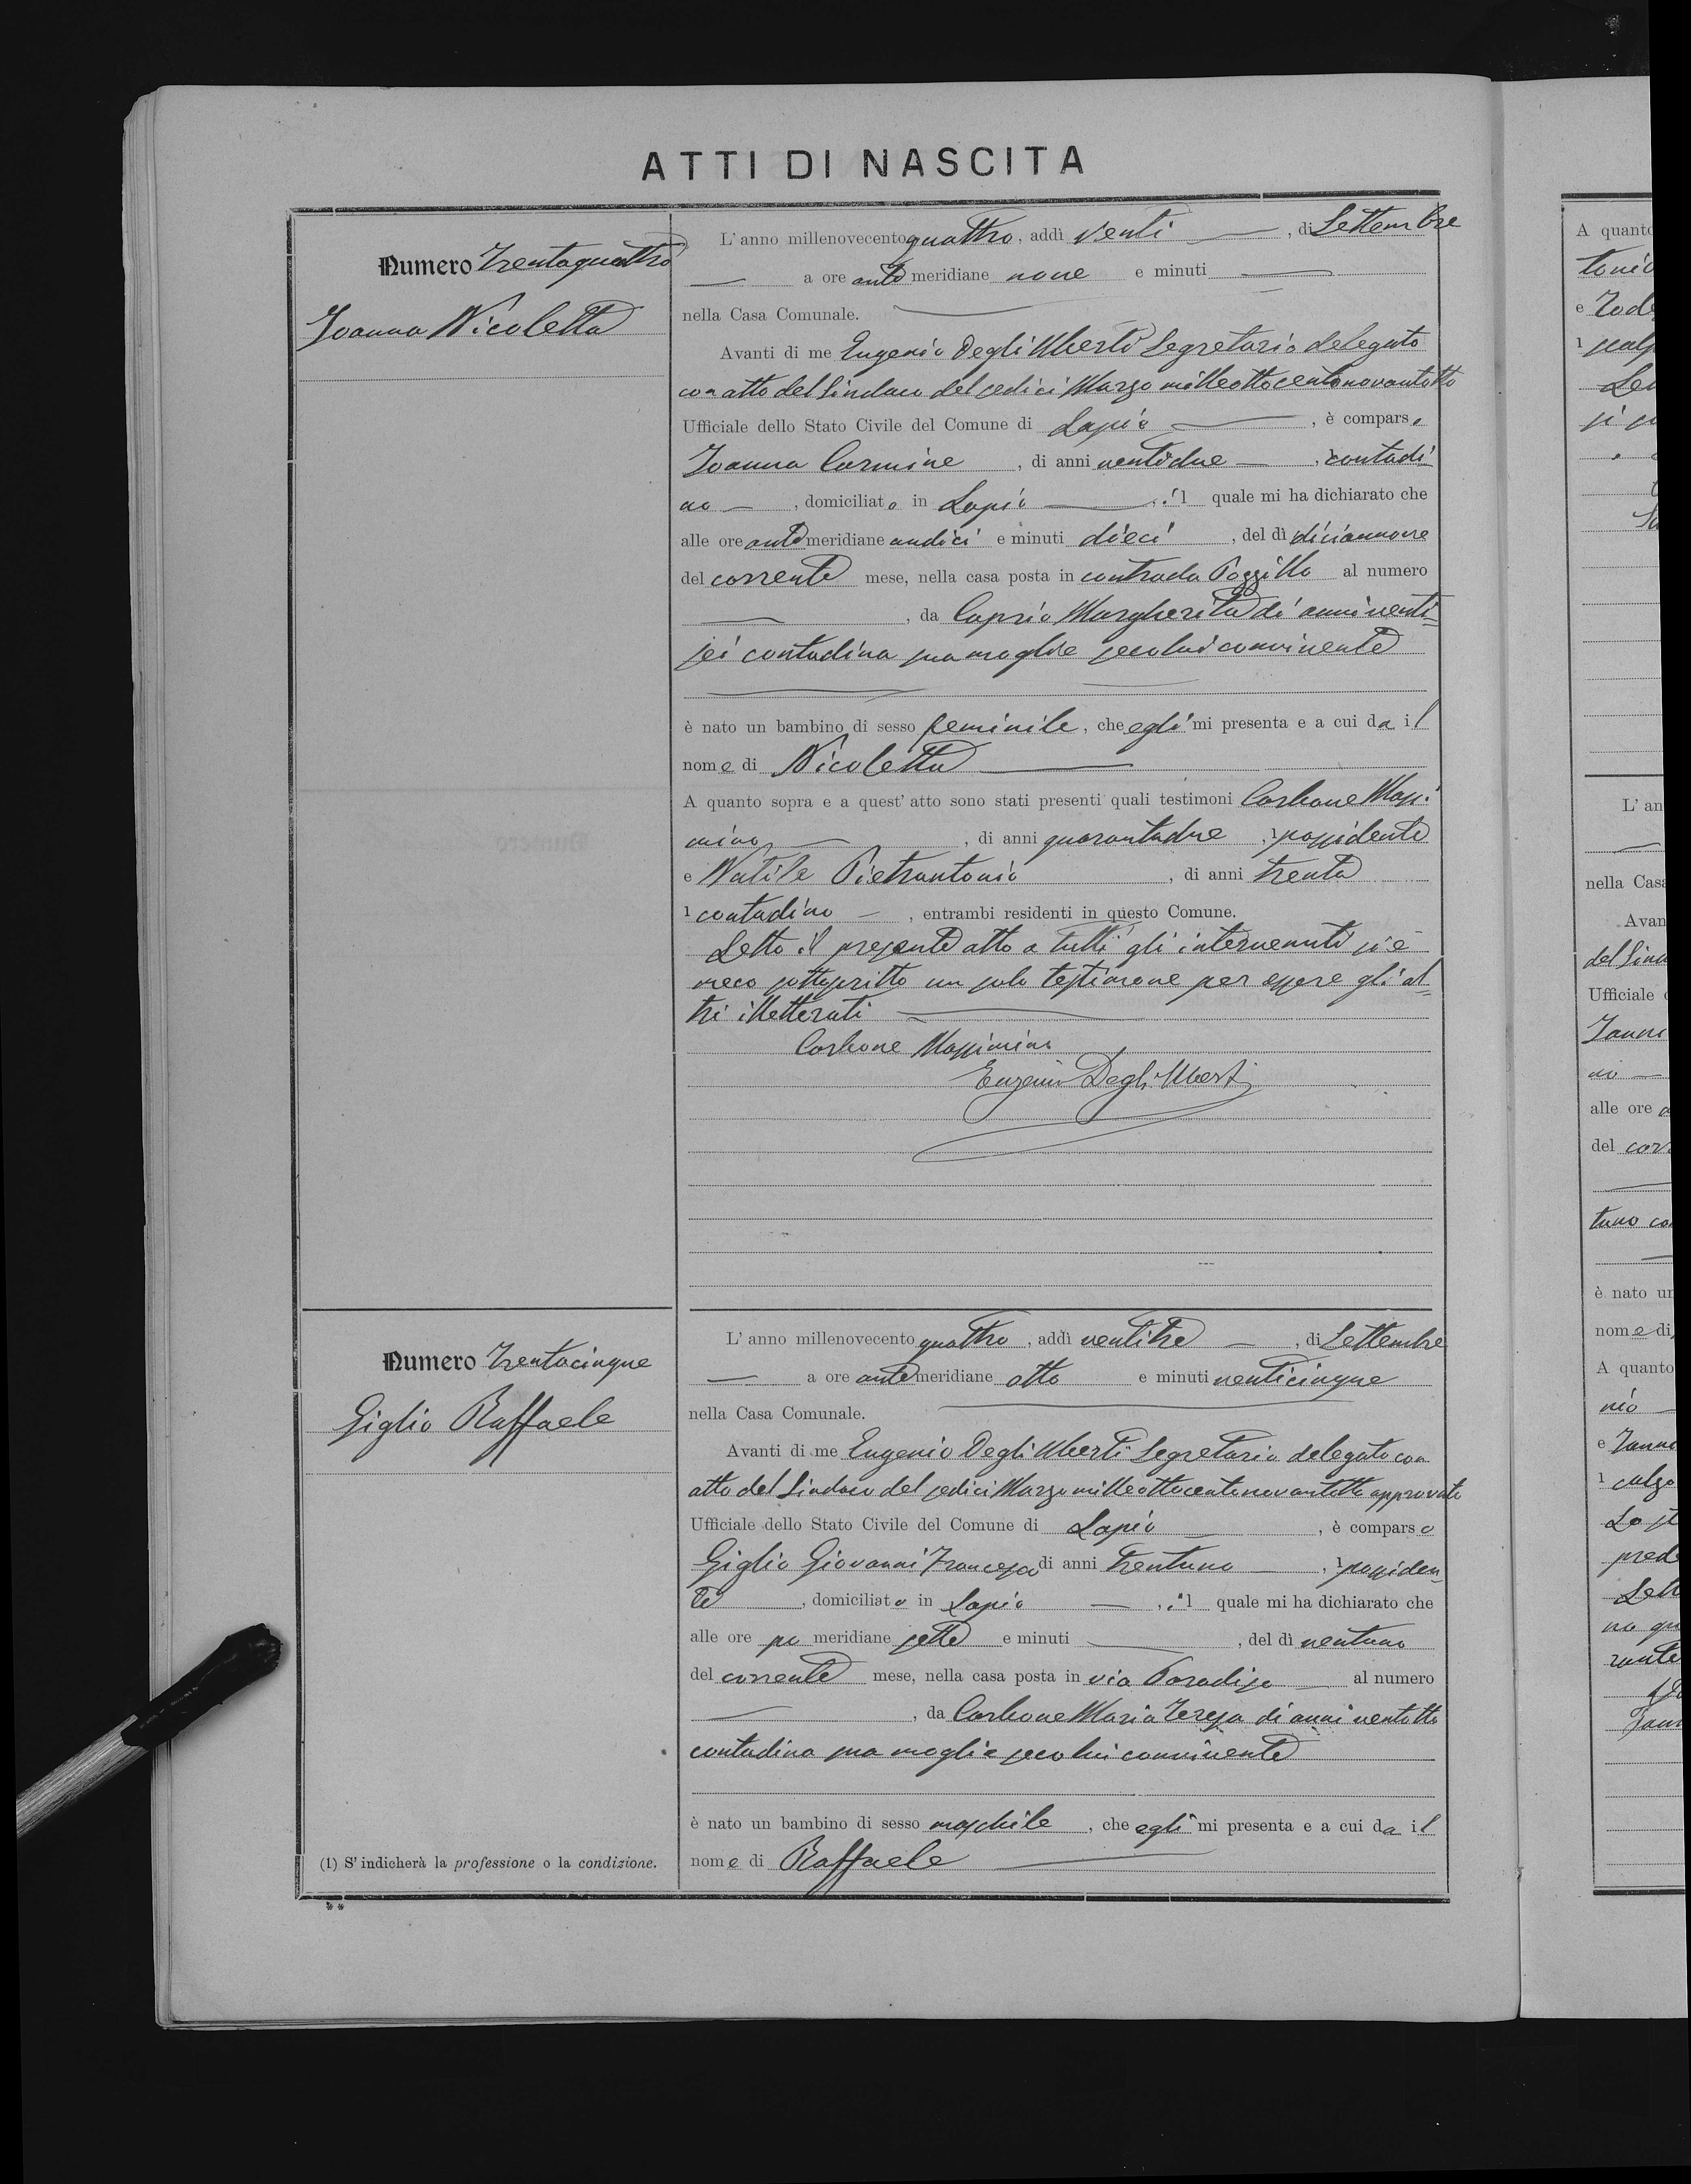 ATTI DI NASCITA
Numero Trentaquattro
Joanna Nicoletta
L'anno millenovecento quattro, addì venti, di Settembre
a ore antemeridiane nove e minuti
nella Casa Comunale.
Avanti di me Eugenio Degli Uberti Segretario delegato
con atto del Sindaco del sedici Marzo milleottocentonovantotto
Ufficiale dello Stato Civile del Comune di Lapio, è comparso
Joanna Carmine, di anni ventidue, contadi-
no, domiciliato in Lapio, il quale mi ha dichiarato che
alle ore antemeridiane undici e minuti dieci, del dì diciannove
del corrente mese, nella casa posta in contrada Poggillo al numero
, da Caprio Margherita di anni venti-
sei contadina sua moglie secolui convivente
è nato un bambino di sesso feminile, che egli mi presenta e a cui da il
nome di Nicoletta
A quanto sopra e a quest'atto sono stati presenti quali testimoni Carbone Massi-
mino, di anni quarantadue, 1 possidente
e Natile Pietrantonio, di anni trenta
1 contadino, entrambi residenti in questo Comune.
Letto il presente atto a tutti gli intervenuti si è
meco sottoscritto un solo testimone per essere gli al-
tri illetterati
Carbone Massimino
Eugenio Degli Uberti
Numero Trentacinque
Giglio Raffaele
L'anno millenovecento quattro, addì ventitre, di Settembre
a ore antemeridiane otto e minuti venticinque
nella Casa Comunale.
Avanti di me Eugenio Degli Uberti Segretario delegato con
atto del Sindaco del sedici Marzo milleottocentonovantotto approvato
Ufficiale dello Stato Civile del Comune di Lapio, è comparso
Giglio Giovanni Francesco di anni trentuno, 1 possiden-
te, domiciliato in Lapio, il quale mi ha dichiarato che
alle ore po meridiane sette e minuti, del dì ventuno
del corrente mese, nella casa posta in via Paradiso al numero
, da Carbone Maria Teresa di anni ventotto
contadina sua moglie seco lui convivente
è nato un bambino di sesso maschile, che egli mi presenta e a cui da il
nome di Raffaele
(1) S'indicherà la professione o la condizione.
**
A quanto
tonio
e
1
L'an
nella Casa
Avan
del Sind
Ufficiale
no
alle ore
del corr
è nato un
nome di
A quanto
nio
e
1